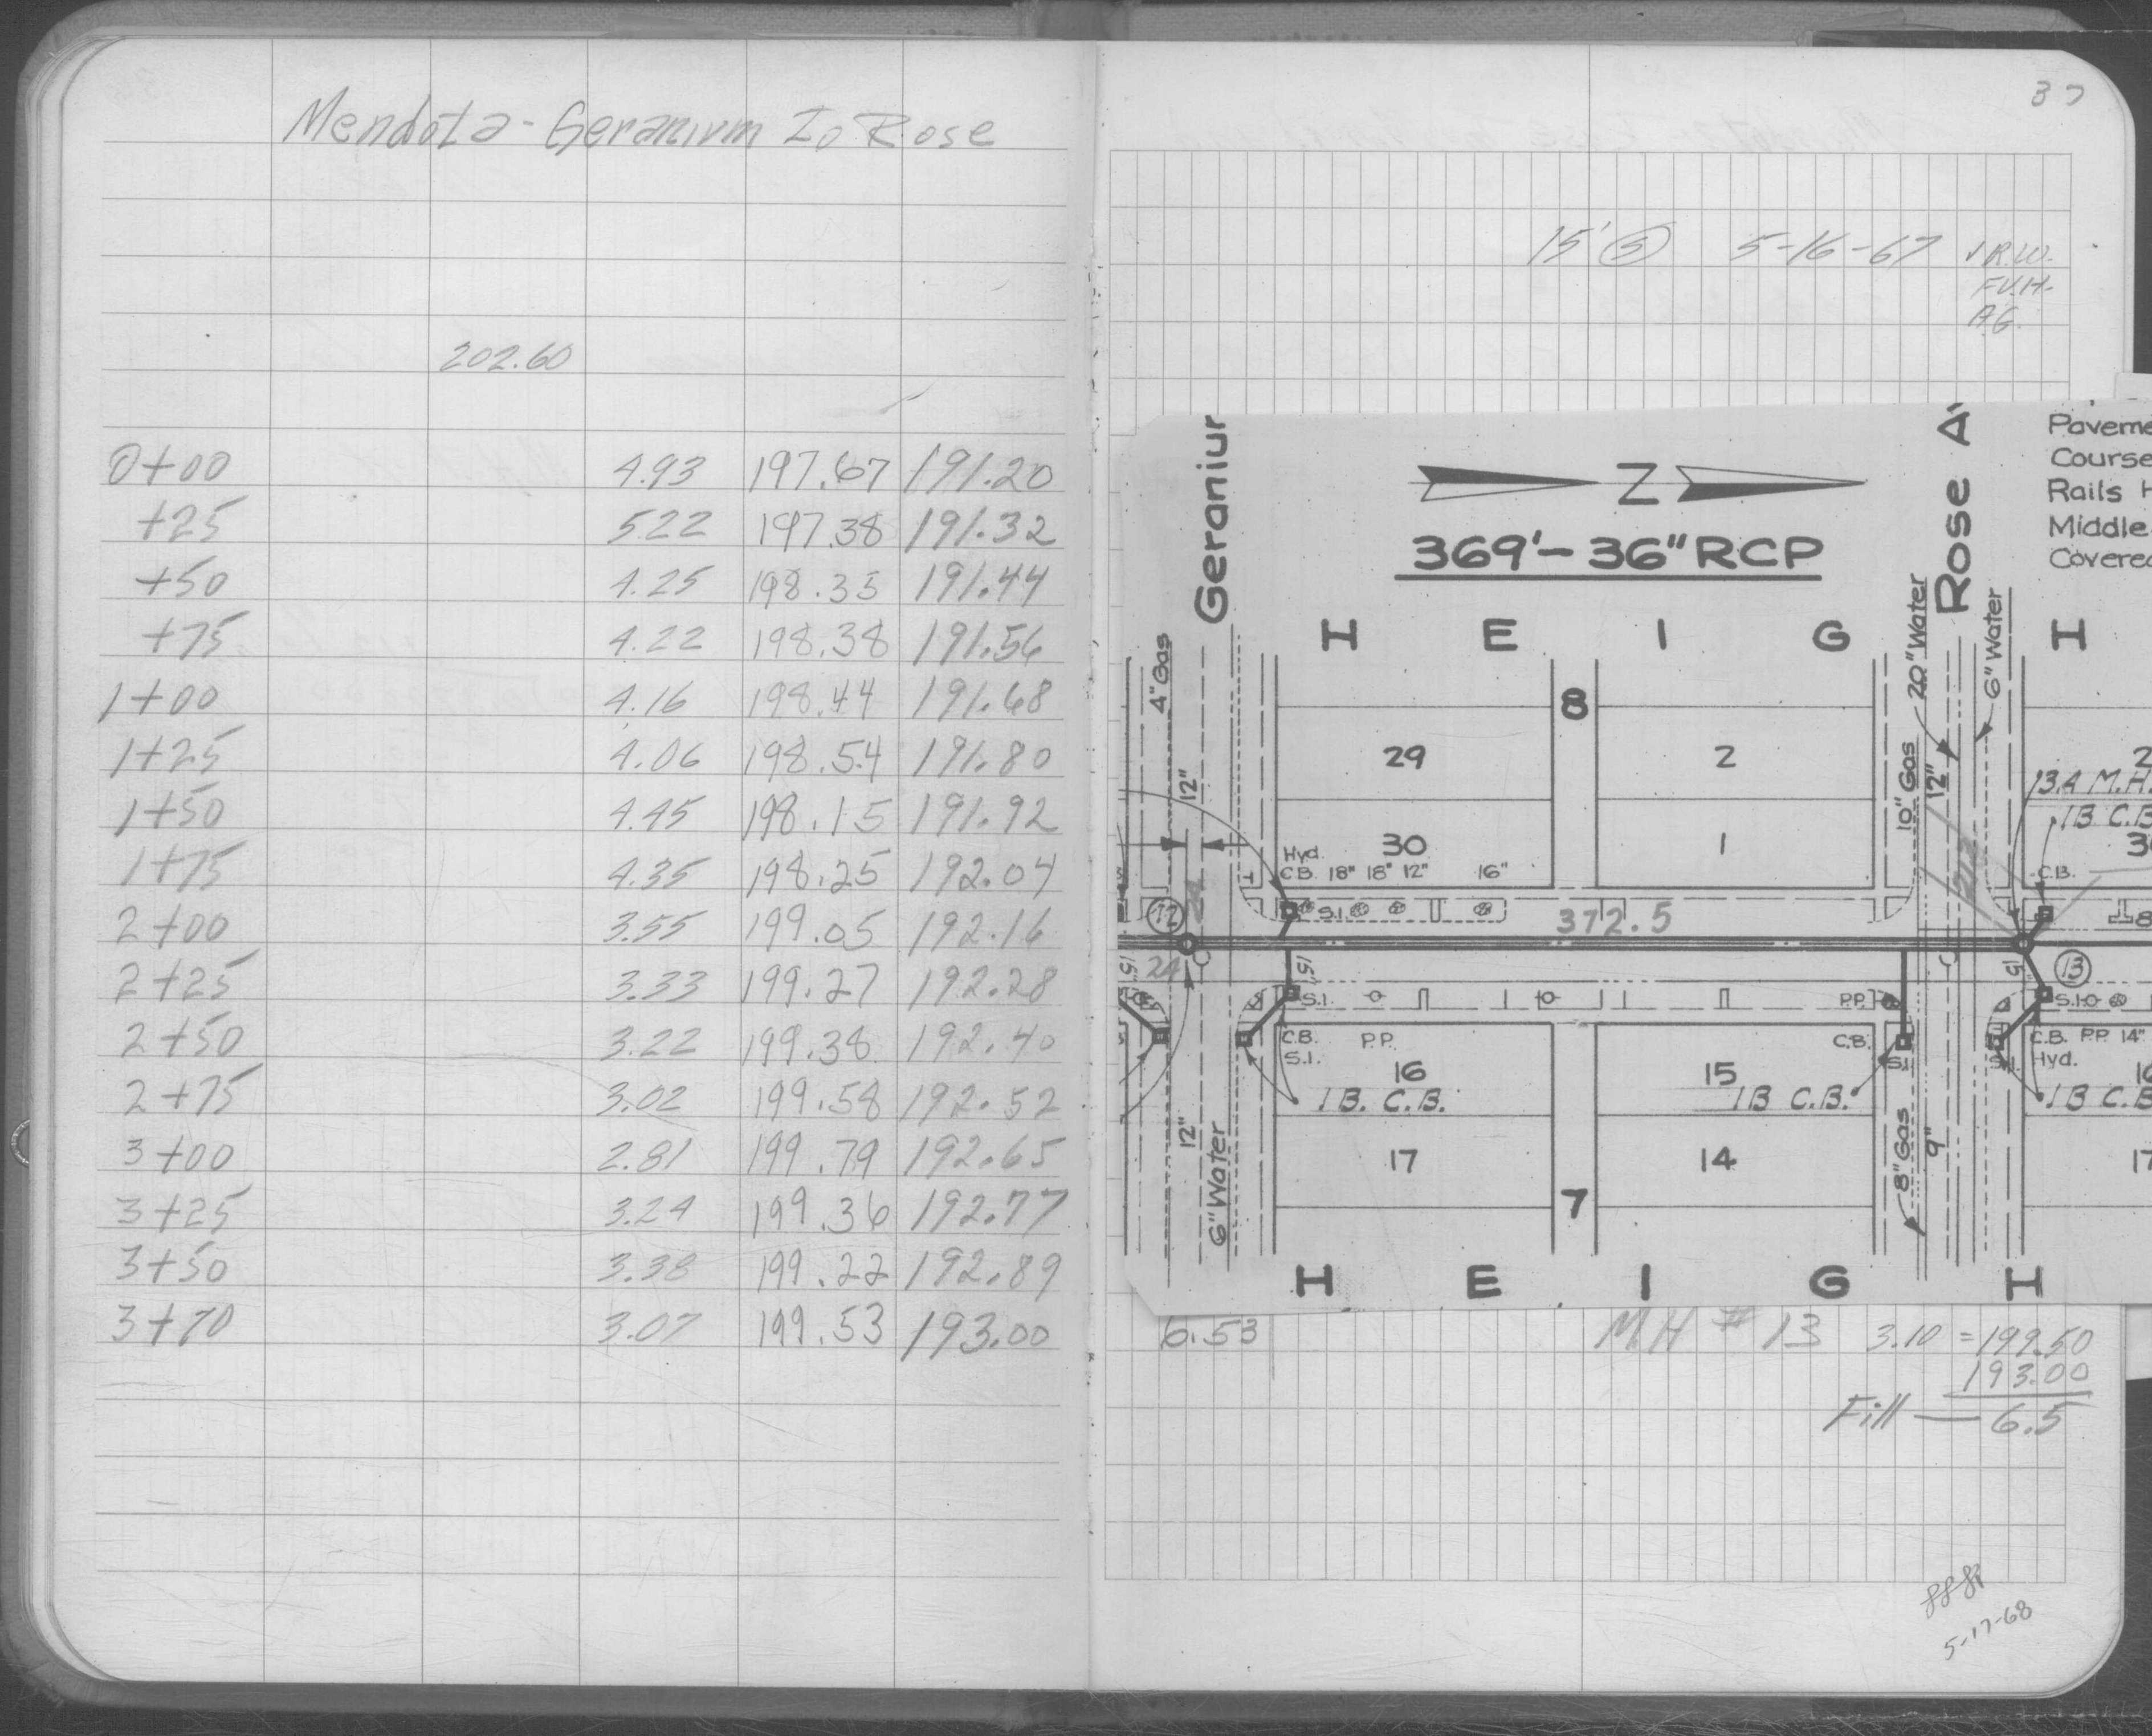 Mendota - Geranium To Rose
202.60
0+00 4.93 197.67 191.20
+25 5.22 197.38 191.32
+50 4.25 198.35 191.44
+75 4.22 198.38 191.56
1+00 4.16 198.44 191.68
1+25 4.06 198.54 191.80
1+50 4.45 198.15 191.92
1+75 4.35 198.25 192.04
2+00 3.55 199.05 192.16
2+25 3.33 199.27 192.28
2+50 3.22 199.38 192.40
2+75 3.02 199.58 192.52
3+00 2.81 199.79 192.65
3+25 3.24 199.36 192.77
3+50 3.38 199.22 192.89
3+70 3.07 199.53 193.00
37
15' (S) 5-16-67 J.R.W.
F.V.H.
A.G.
Geraniur
Rose A
Paveme
Course
Rails H
Middle
Covered
Z
369'-36" RCP
H E I G H
4" Gas
20" Water
6" Water
8
29
2
2
12"
10" Gas
12"
13.4 M.H.
1B C.B
30
1
3
Hyd.
C.B. 18" 18" 12" 16"
C.B.
212
12
24
S.I.
372.5
8
24
15"
15"
15"
13
S.I.
P.P.
S.I.
C.B. P.P.
S.I.
C.B.
S.I.
S.I.
C.B. P.P. 14"
Hyd.
16
15
16
1B. C.B.
1B C.B.
1B C.B
12"
6" Water
17
14
17
8" Gas
9"
7
H E I G H
6.53 MH # 13 3.10 = 199.50
193.00
Fill — 6.5
5-17-68